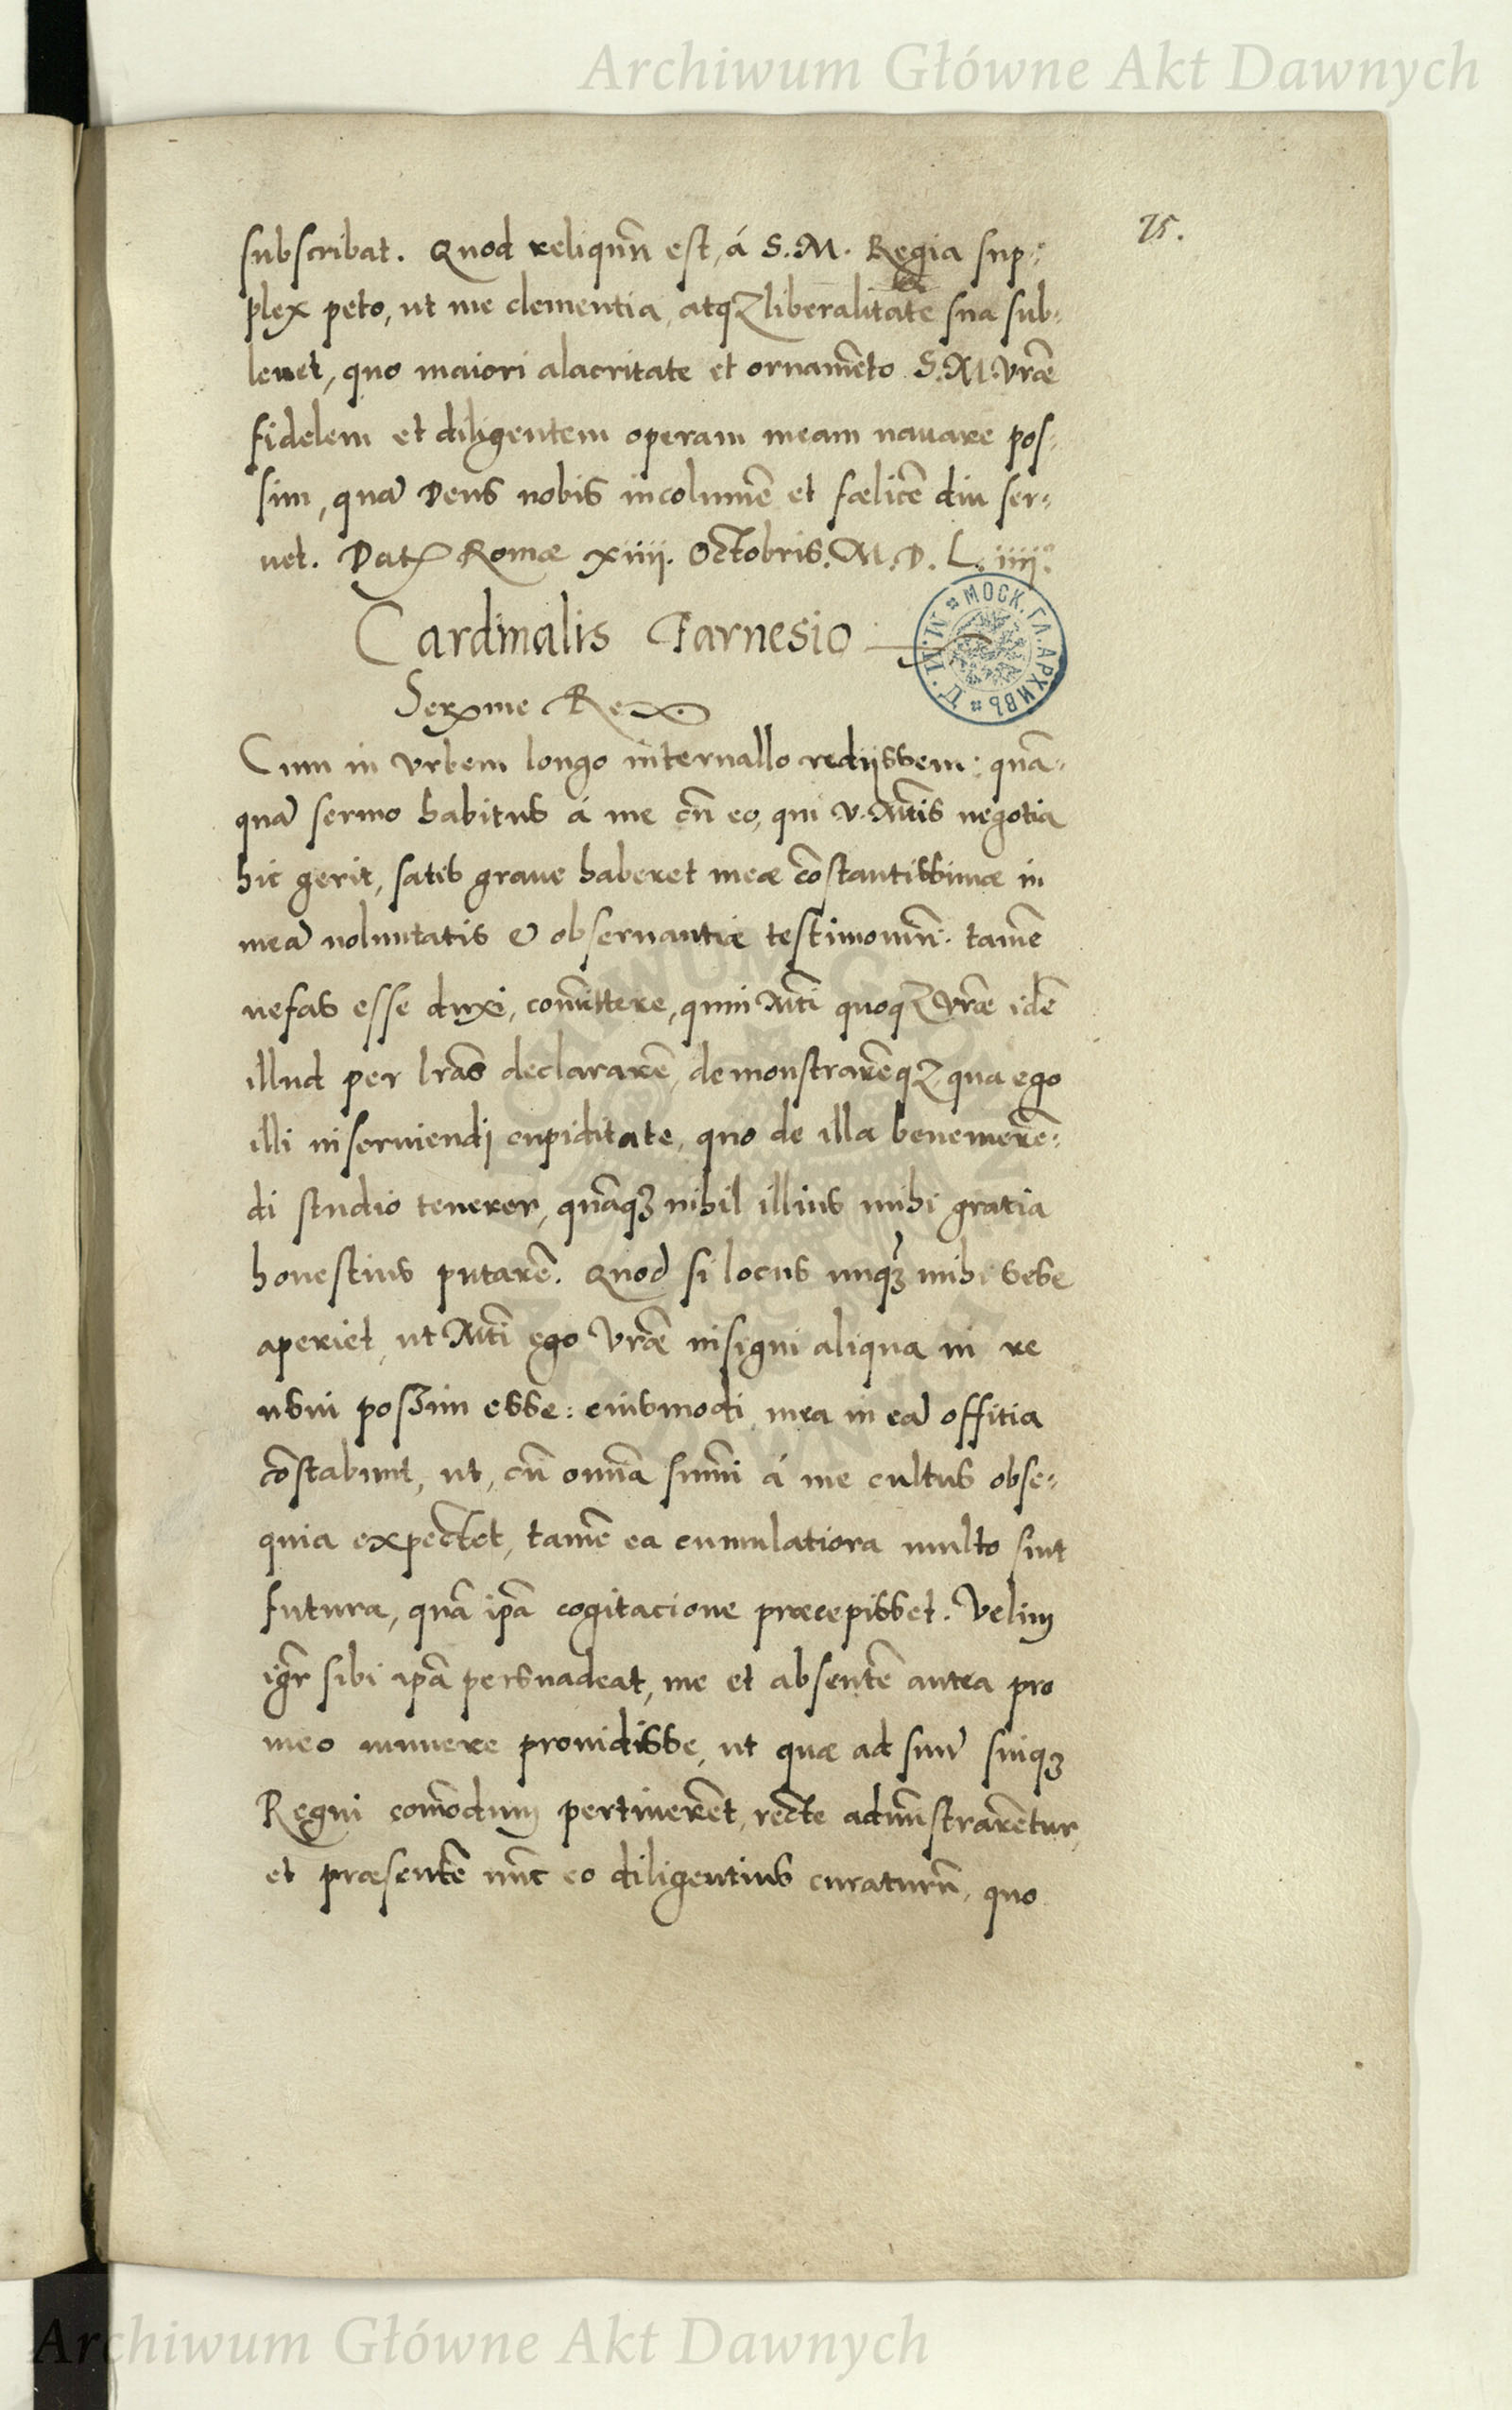 Archiwum Główne Akt Dawnych
75.
subscribat. Quod reliquũ est, á S. M. Regia sup-
plex peto, ut me clementia, atq; liberalitate sua sub-
leuet, quo maiori alacritate et ornamẽto S. M. Vrãe
fidelem et diligentem operam meam nauare pos-
sim, quã Deus nobis incolumẽ et fœlicẽ diu ser-
uet. Dat. Romæ xiiii. Octobris. M. D. L. iiii.º
Cardinalis Farnesio
МОСК. ГЛ. АРХИВЪ
Serx̃me Rex
Cum in Vrbem longo interuallo rediissem: quã-
quã sermo habitus á me cũ eo, qui V. Mt̃is negotia
hic gerit, satis graue haberet meæ cõstantissimæ in
meã uoluntatis & obseruantiæ testimoniũ: tamẽ
nefas esse duxi, comĩttere, quin Mt̃i quoq; Vrãe idẽ
illud per lrãs declararẽ, demonstrarẽq; qua ego
illi inseruiendi cupiditate, quo de illa benemerẽ-
di studio tenerer, quãq; nihil illius mihi gratia
honestius putarẽ. Quod si locus unq̃; mihi sese
aperiet, ut Mt̃i ego Vrãe insigni aliqua in re
usui possim esse: eiusmodi mea in eã offitia
cõstabunt, ut, cũ omĩa sum̃i á me cultus obse-
quia expectet, tamẽ ea cumulatiora multo sint
futura, quã ip̃a cogitacione præcepisset. Velim
igr̃ sibi ip̃a persuadeat, me et absentẽ antea pro
meo munere prouidisse, ut quæ ad suũ suiq;
Regni com̃odum pertinerẽt, recte admĩstrarẽtur,
et præsentẽ nũc eo diligentius curaturũ, quo
Archiwum Główne Akt Dawnych